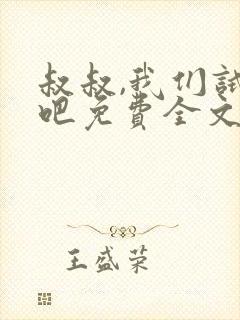 叔叔,我们试
吧免费全文
王盛荣